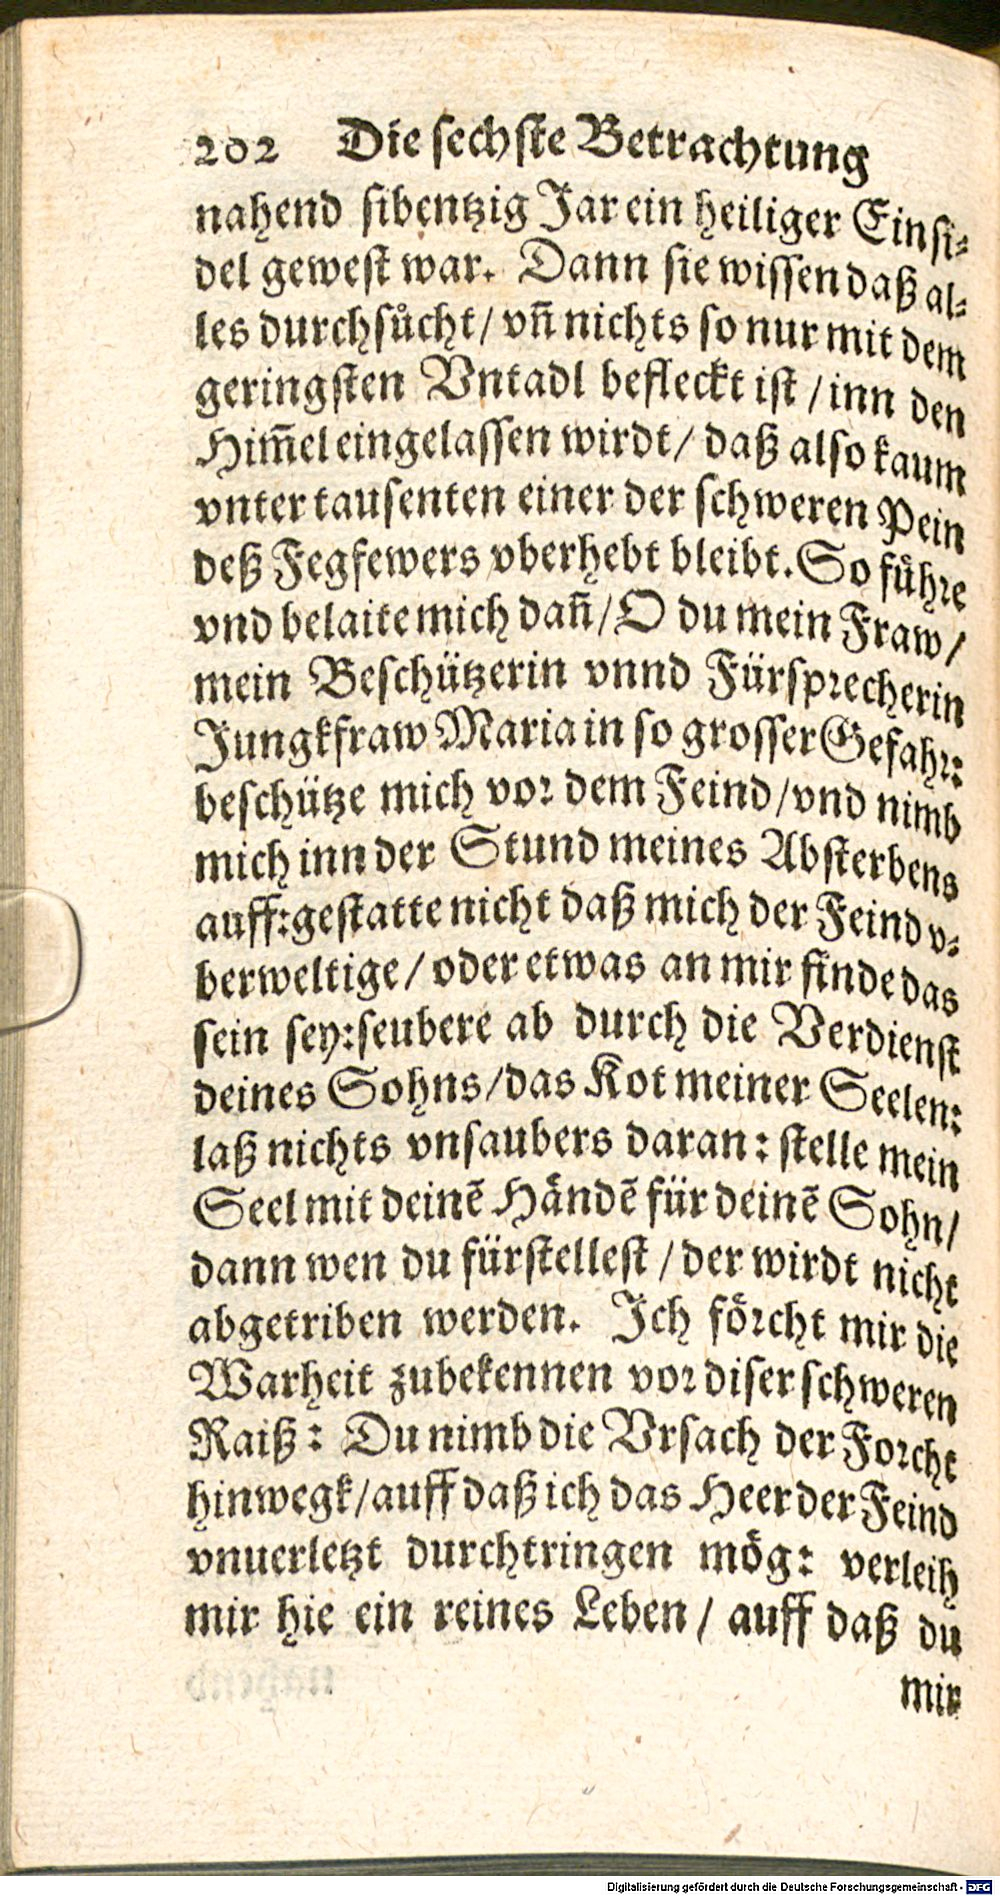 202 Die sechste Betrachtung
nahend sibentzig Jar ein heiliger Einsi-
del gewest war. Dann sie wissen daß al-
les durchsůcht/ vñ nichts so nur mit dem
geringsten Vntadl befleckt ist / inn den
Him̃el eingelassen wirdt/ daß also kaum
vnter tausenten einer der schweren Pein
deß Fegfewers vberhebt bleibt. So führe
vnd belaite mich dañ/ O du mein Fraw/
mein Beschützerin vnnd Fürsprecherin
Jungkfraw Maria in so grosser Gefahr:
beschütze mich vor dem Feind/ vnd nimb
mich inn der Stund meines Absterbens
auff: gestatte nicht daß mich der Feind v-
berweltige/ oder etwas an mir finde das
sein sey: seubere ab durch die Verdienst
deines Sohns/ das Kot meiner Seelen:
laß nichts vnsaubers daran: stelle mein
Seel mit deinẽ Händẽ für deinẽ Sohn/
dann wen du fürstellest / der wirdt nicht
abgetriben werden. Ich förcht mir die
Warheit zubekennen vor diser schweren
Raiß: Du nimb die Vrsach der Forcht
hinwegk/ auff daß ich das Heer der Feind
vnuerletzt durchtringen mög: verleih
mir hie ein reines Leben / auff daß du
mir
Digitalisierung gefördert durch die Deutsche Forschungsgemeinschaft - DFG